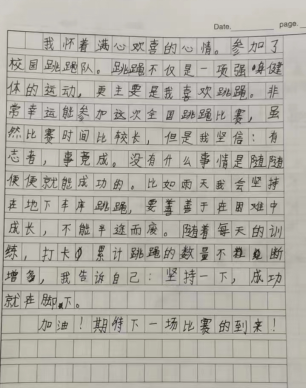 Date. page.
我怀着满心欢喜的心情。参加了
校园跳踢队。跳踢不仅是一项强唤健
体的运动，更主要是我喜欢跳踢。非
常幸运能参加这次全国跳踢比赛，虽
然比赛时间比较长，但是我坚信：有
志者，事竟成。没有什么事情是随随
便便就能成功的。比如雨天我会坚持
在地下车库跳踢，要善于在困难中
成长，不能半途而废。随着每天的训
练，打卡累计跳踢的数量不断
增多，我告诉自己：坚持一下，成功
就在脚下。
加油！期待下一场比赛的到来！